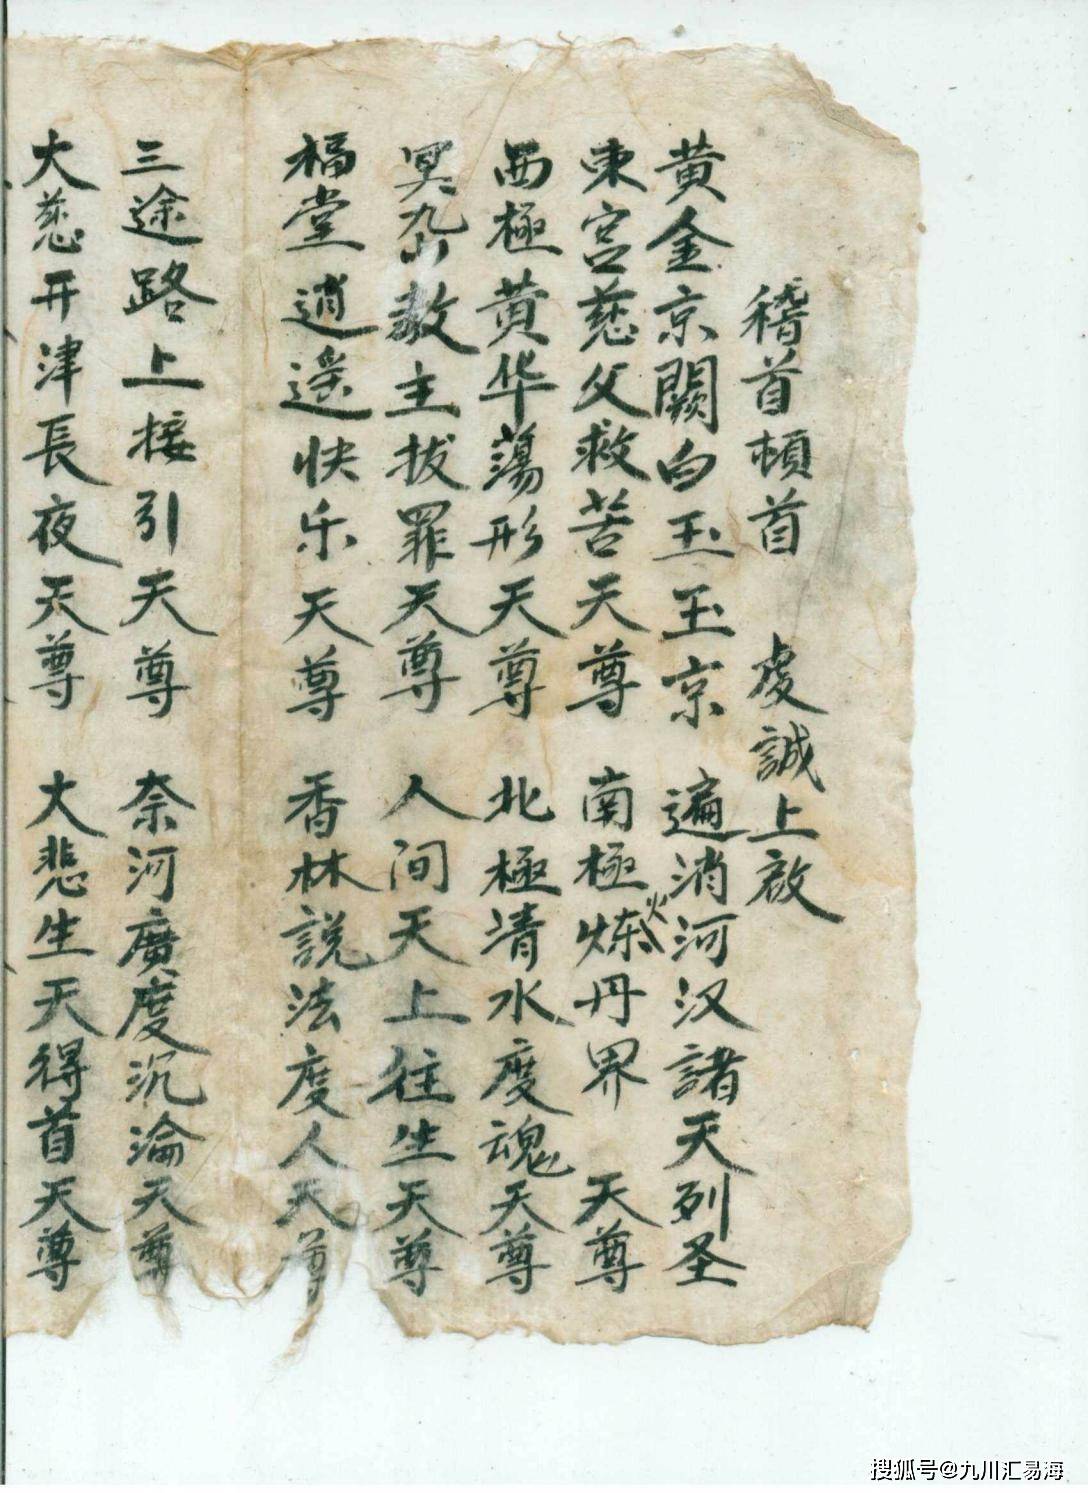 稽首頓首 虔誠上啟
黄金京闕白玉玉京 遍消河汉諸天列圣
東宫慈父救苦天尊 南極炼丹界 天尊
火
西極黄华蕩形天尊 北極清水度魂天尊
冥九幽教主拔罪天尊 人间天上往生天尊
福堂逍遥快乐天尊 香林説法度人天尊
三途路上接引天尊 奈河廣度沉淪天尊
大慈开津長夜天尊 大悲生天得首天尊
搜狐号@九川汇易海